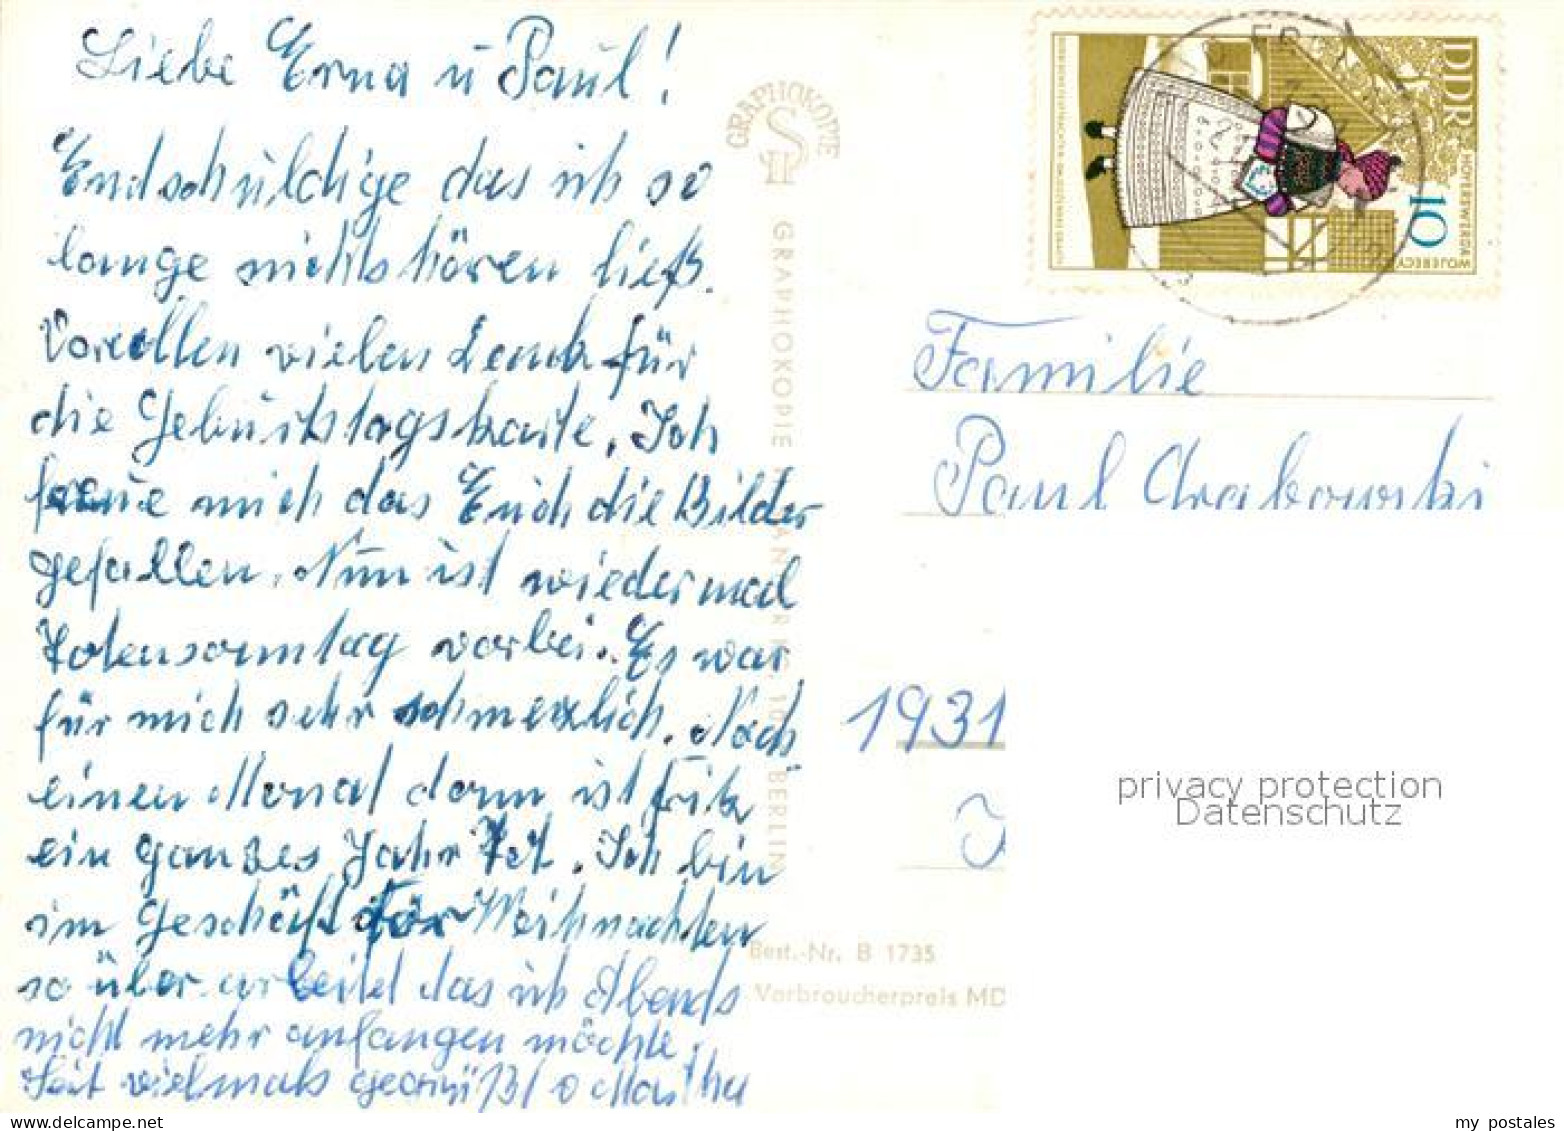 Liebe Erna u Paul!
Endschuldige das ich so
lange nichts hören ließ.
Vorallen vielen Dank für
die Geburtstagskarte. Ich
freue mich das Euch die Bilder
gefallen. Nun ist wieder mal
Totensonntag vorbei. Es war
für mich sehr schmerzlich. Nach
einen Monat dann ist Fritz
ein ganzes Jahr tot. Ich bin
im Geschäft vor Weihnachten
so über arbeitet das ich Abends
nicht mehr anfangen möchte.
Seit vielmals gegrüßt Martha
GRAPHOKOPIE
GRAPHOKOPIE H. 10 BERLIN
DDR
10
HOYERSWERDA
WOJERECY
Familie
Paul Grabowski
1931
privacy protection
Datenschutz
Best.-Nr. B 1735
Verbraucherpreis MD
my postales
www.delcampe.net